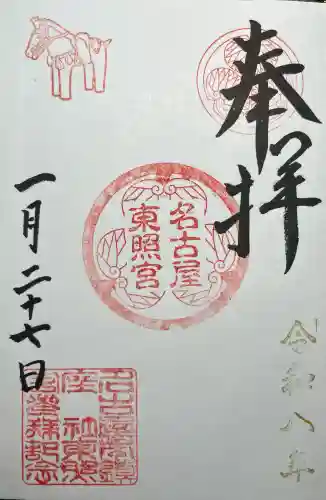 奉拝
令和八年
名古屋
東照宮
一月二十七日